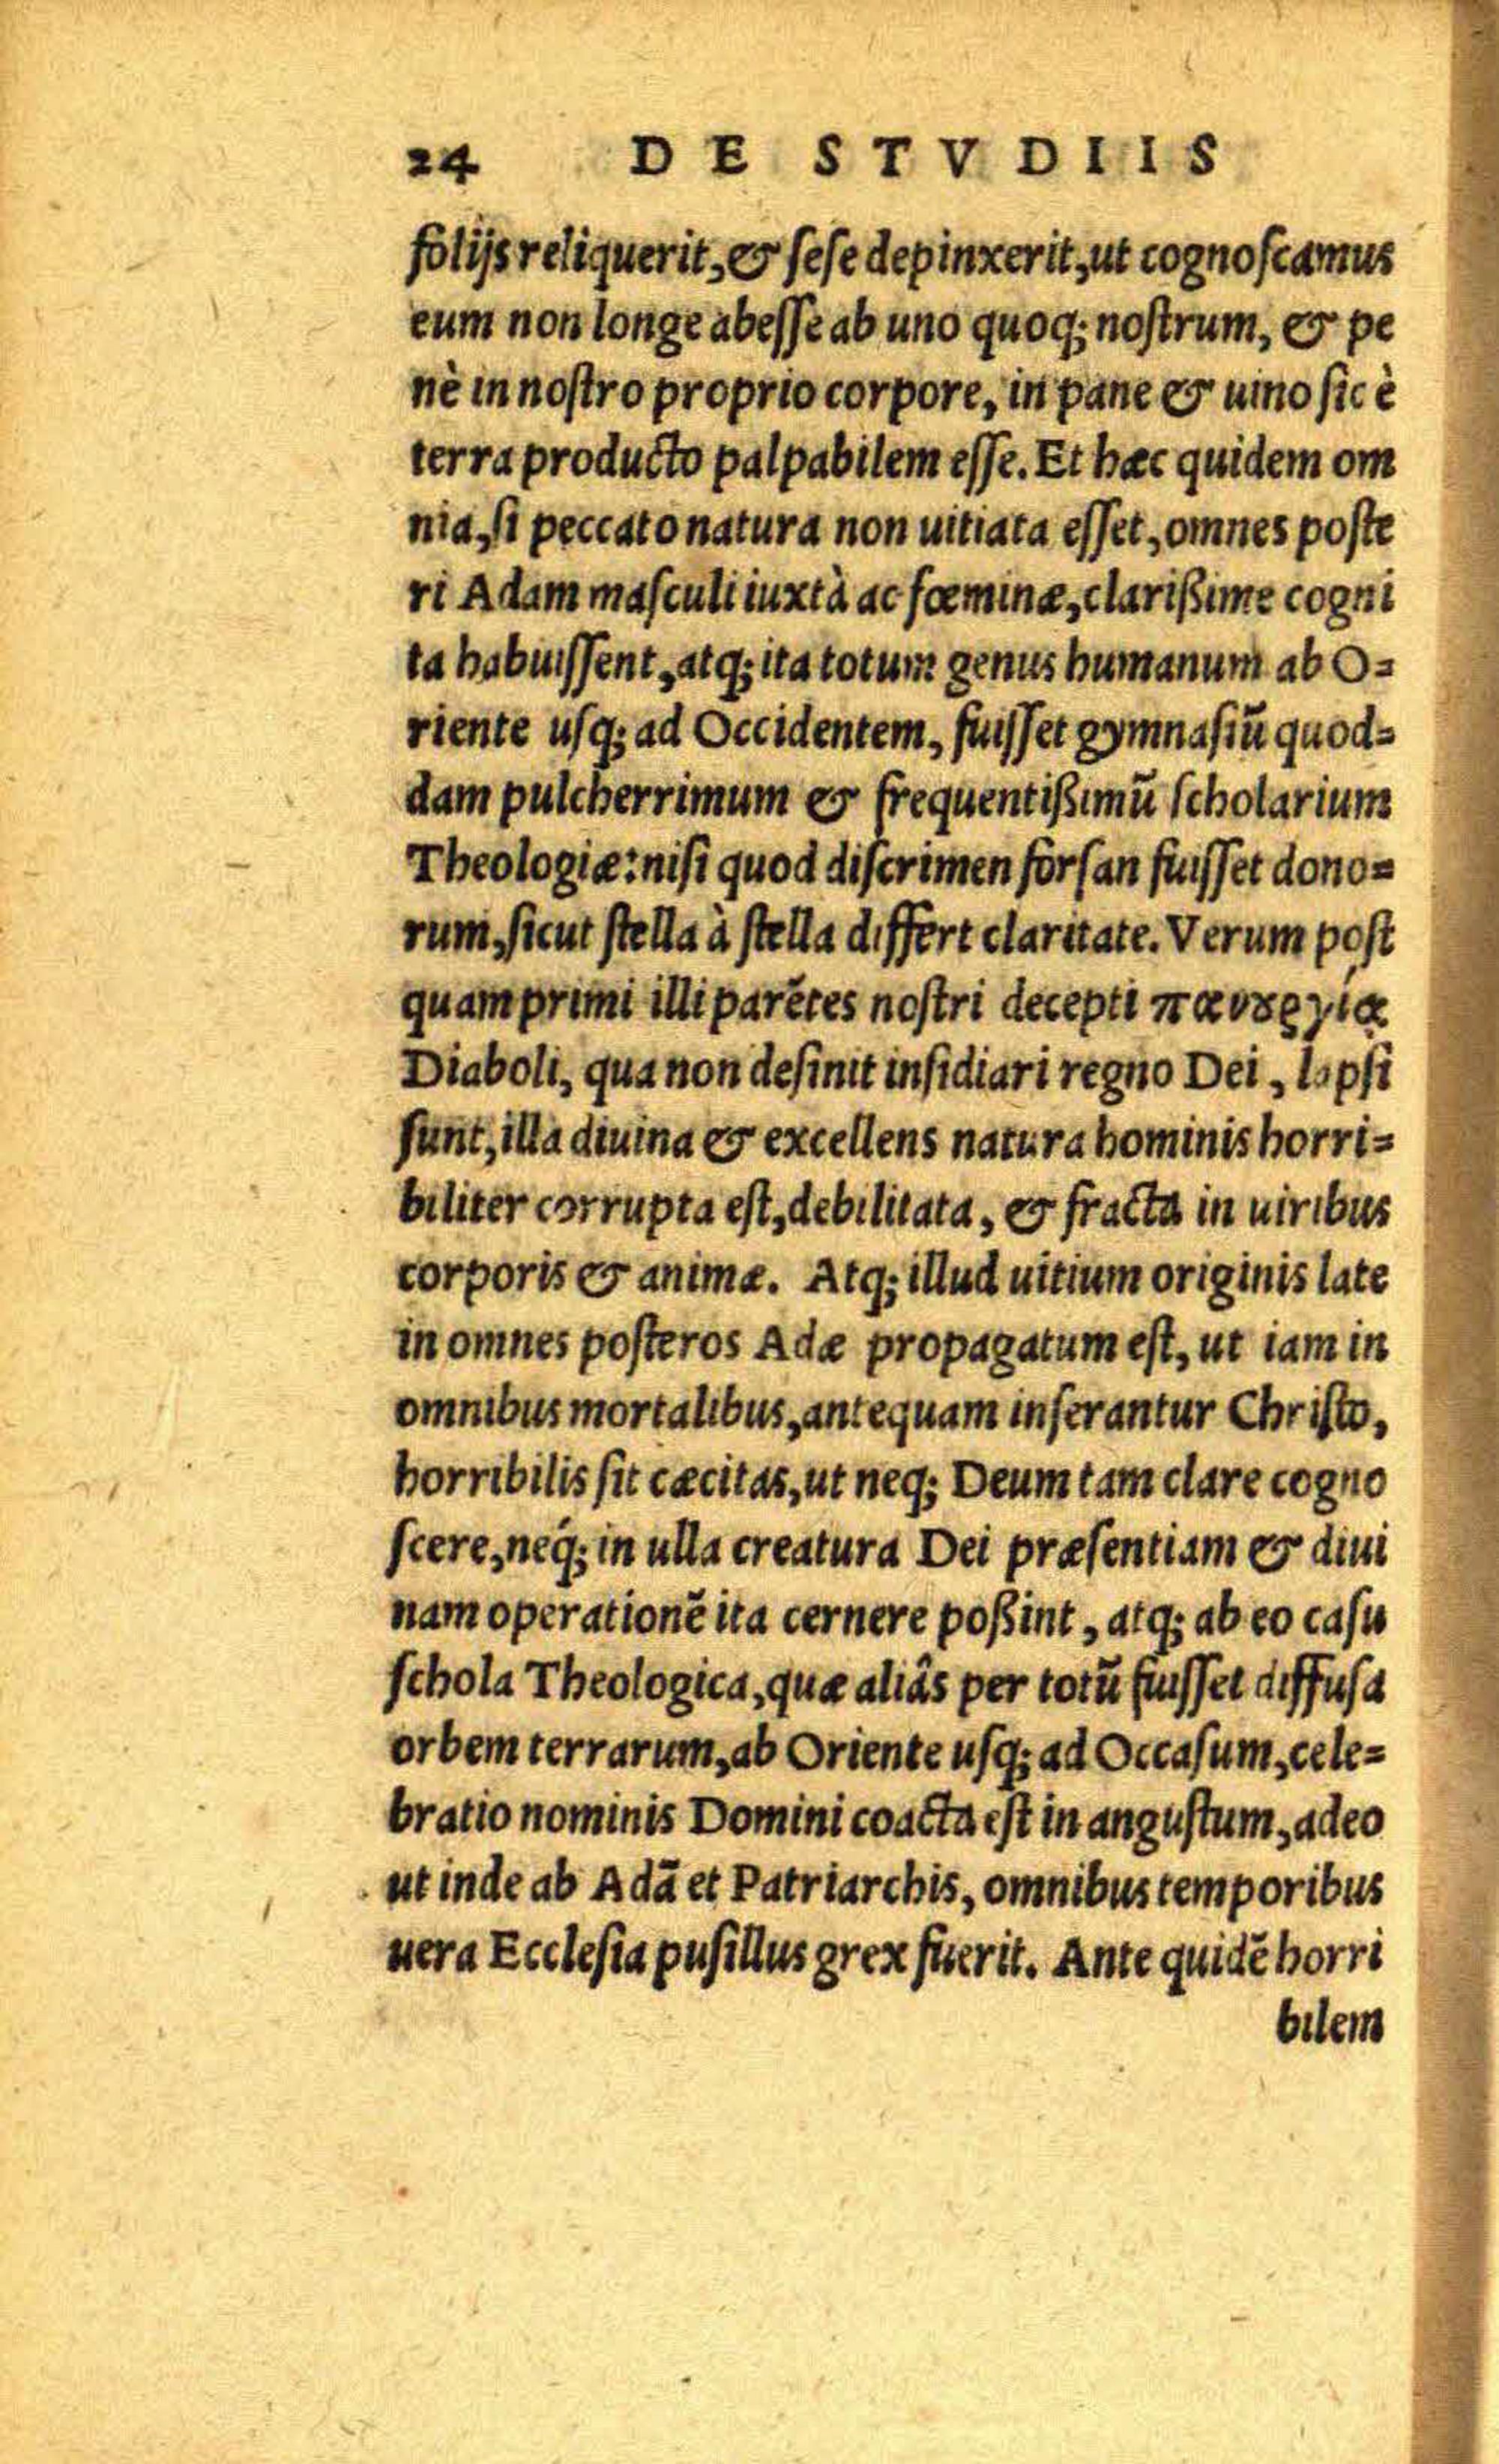 24 DE STVDIIS
folijs reliquerit, & sese depinxerit, ut cognoscamus
eum non longe abesse ab uno quoq; nostrum, & pe
nè in nostro proprio corpore, in pane & uino sic è
terra producto palpabilem esse. Et hæc quidem om
nia, si peccato natura non uitiata esset, omnes poste
ri Adam masculi iuxtà ac fœminæ, clarißime cogni
ta habuissent, atq; ita totum genus humanum ab O=
riente usq; ad Occidentem, fuisset gymnasiũ quod=
dam pulcherrimum & frequentißimũ scholarium
Theologiæ: nisi quod discrimen forsan fuisset dono=
rum, sicut stella à stella differt claritate. Verum post
quam primi illi parẽtes nostri decepti πανȣργίᾳ
Diaboli, qua non desinit insidiari regno Dei, lapsi
sunt, illa diuina & excellens natura hominis horri=
biliter corrupta est, debilitata, & fracta in uiribus
corporis & animæ. Atq; illud uitium originis late
in omnes posteros Adæ propagatum est, ut iam in
omnibus mortalibus, antequam inserantur Christo,
horribilis sit cæcitas, ut neq; Deum tam clare cogno
scere, neq́; in ulla creatura Dei præsentiam & diui
nam operationẽ ita cernere poßint, atq; ab eo casu
schola Theologica, quæ aliâs per totũ fuisset diffusa
orbem terrarum, ab Oriente usq; ad Occasum, cele=
bratio nominis Domini coacta est in angustum, adeo
ut inde ab Adã et Patriarchis, omnibus temporibus
uera Ecclesia pusillus grex fuerit. Ante quidẽ horri
bilem